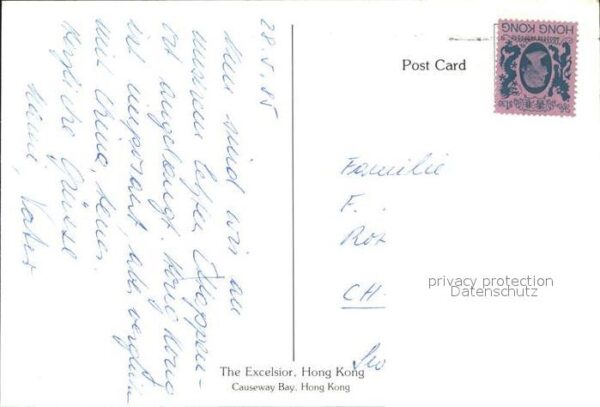 28.5.85
Nun sind wir an
unserem letzten Etappen-
ort angelangt. Hong Kong
ist imposant, aber, verglichen
mit China, teuer.
Herzliche Grüsse
Mami, Vater
HONG KONG
香港
$1.30
Post Card
Familie
F.
Rot
CH
privacy protection
Datenschutz
The Excelsior, Hong Kong
Causeway Bay, Hong Kong